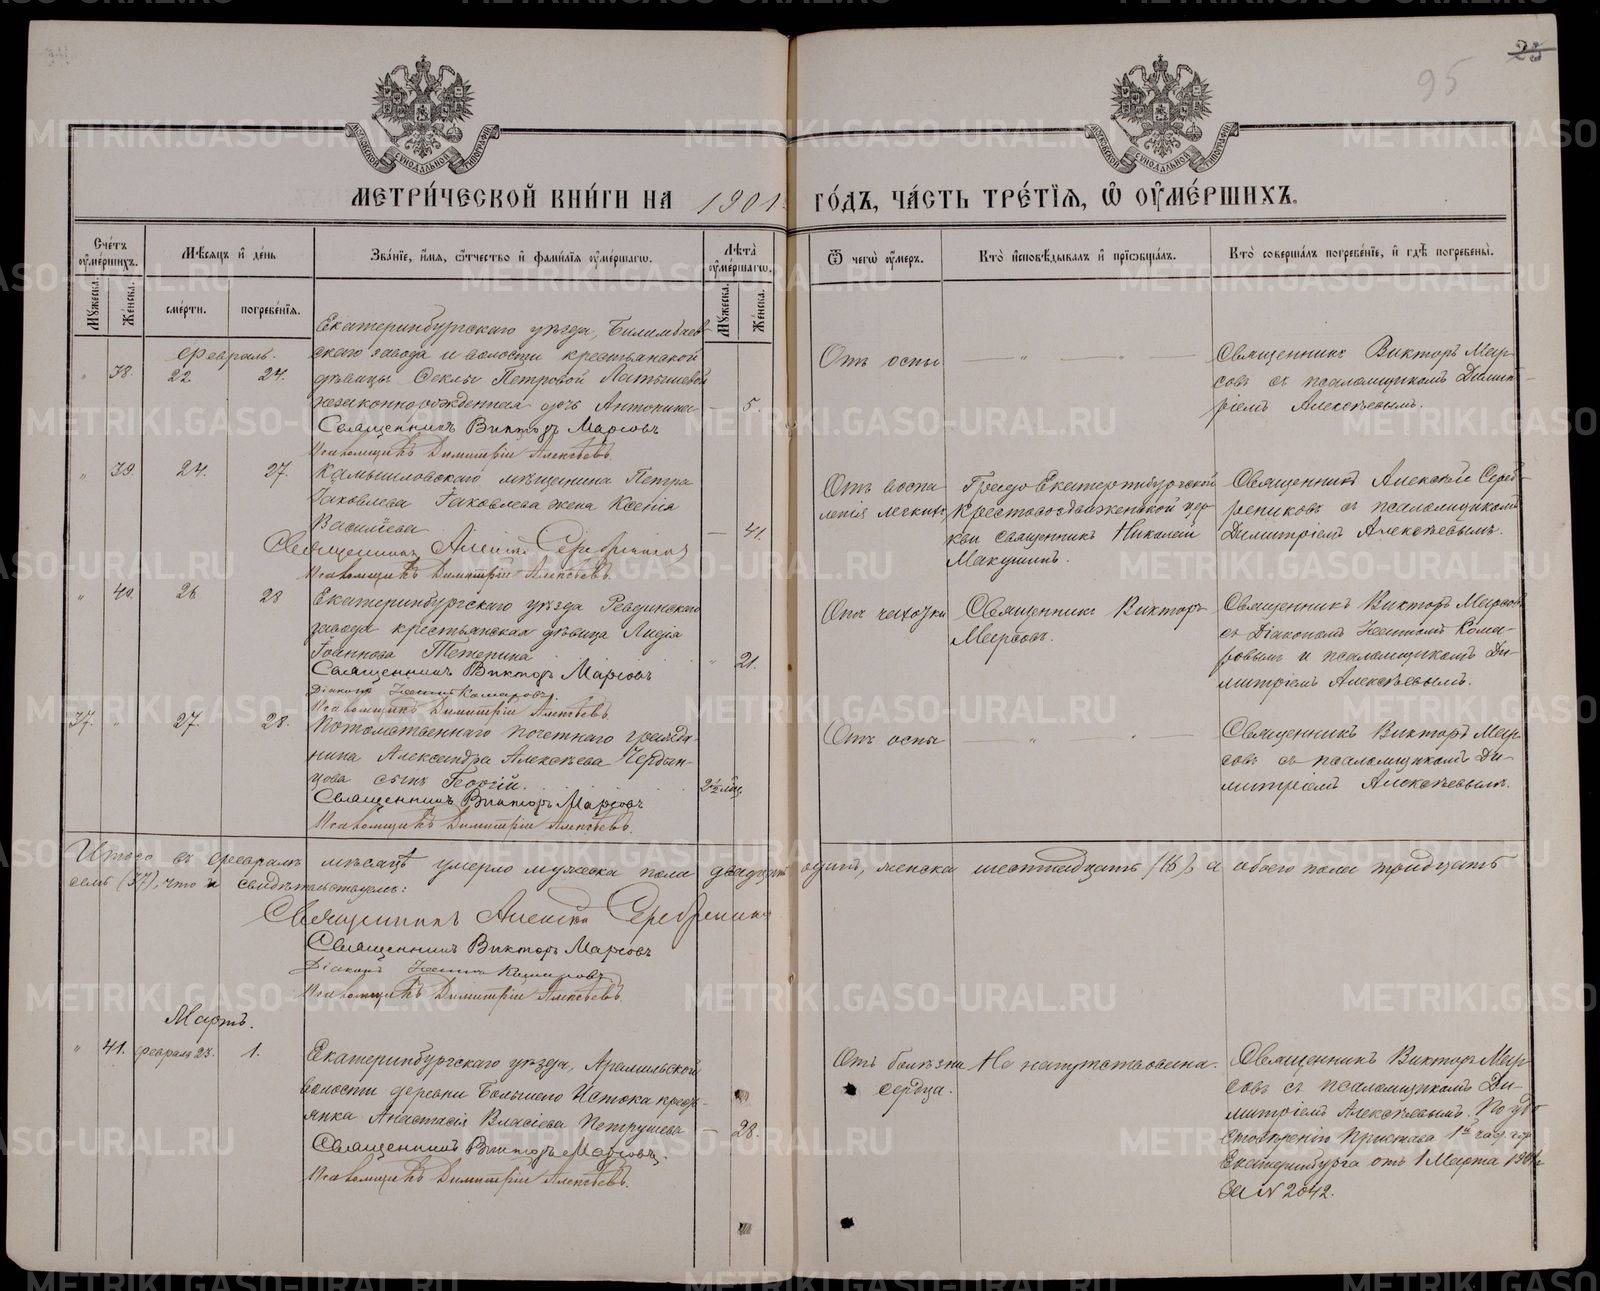 95
23
МЕТРИЧЕСКОЙ КНИГИ НА 1901 ГОДЪ, ЧАСТЬ ТРЕТІЯ, Ѡ ОУМЕРШИХЪ.
Счетъ оумершихъ.
Мужеска.
Женска.
Мѣсяцъ и день
смерти.
погребенія.
Званіе, имя, отчество и фамилія оумершагѡ.
Лѣта оумершагѡ.
Мужеска.
Женска.
Ѿ чегѡ оумеръ.
Кто исповѣдывалъ и пріобщалъ.
Кто совершалъ погребеніе, и гдѣ погребены.
Февраль.
" 38. 22 24.
Екатеринбургскаго уѣзда, Билимбаев-
скаго завода и волости крестьянской
дѣвицы Феклы Петровой Латышевой
незаконнорожденная дочь Антонина
— 5.
Священникъ Викторъ Марсовъ
Псаломщикъ Димитрій Алексѣевъ.
Отъ оспы
— " — " —
Священникъ Викторъ Мар-
совъ съ псаломщикомъ Димит-
ріемъ Алексѣевымъ.
" 39 24. 27.
Камышловскаго мѣщанина Петра
Іаковлева Іаковлева жена Ксенія
Васильева
— 41.
Священникъ Алексій Серебрениковъ
Псаломщикъ Димитрій Алексѣевъ.
Отъ воспа
ленія легкихъ,
Градо Екатеринбургской
Крестовоздвиженской цер
кви священникъ Николай
Макушинъ.
Священникъ Алексій Сереб-
рениковъ съ псаломщикомъ
Димитріемъ Алексѣевымъ.
" 40. 26 28
Екатеринбургскаго уѣзда Ревдинскаго
завода крестьянская дѣвица Лидія
Іоаннова Тетерина
" 21.
Священникъ Викторъ Марсовъ
Діаконъ Комаровъ.
Псаломщикъ Димитрій Алексѣевъ.
Отъ чахотки
Священникъ Викторъ
Марсовъ.
Священникъ Викторъ Марсовъ
съ Діакономъ Кома-
ровымъ и псаломщикомъ Ди-
митріемъ Алексѣевымъ.
37. " 27. 28.
Потомственнаго почетнаго гражда-
нина Александра Алексѣева Чердын-
цова сынъ Георгій.
2½ мѣс.
Священникъ Викторъ Марсовъ
Псаломщикъ Димитрій Алексѣевъ.
Отъ оспы
— " — " —
Священникъ Викторъ Мар-
совъ съ псаломщикомъ Ди-
митріемъ Алексѣевымъ.
Итого въ февралѣ мѣсяцѣ умерло мужеска пола двадцать одинъ, женска шестнадцать (16) а обоего пола тридцать
семь (37). что и свидѣтельствуемъ:
Священникъ Алексій Серебрениковъ
Священникъ Викторъ Марсовъ
Діаконъ Комаровъ
Псаломщикъ Димитрій Алексѣевъ
Мартъ.
" 41. февраля 23. 1.
Екатеринбургскаго уѣзда, Арамильской
волости деревни Большего Истока кресть-
янка Анастасія Власіева Петрушева
— 28.
Священникъ Викторъ Марсовъ.
Псаломщикъ Димитрій Алексѣевъ.
Отъ болѣзни
сердца.
Не напутствована.
Священникъ Викторъ Мар-
совъ съ псаломщикомъ Ди-
митріемъ Алексѣевымъ. По удо
стовѣренію Пристава 1й час. гор.
Екатеринбурга отъ 1 Марта 1901 г.
за № 2042.
METRIKI.GASO-URAL.RU